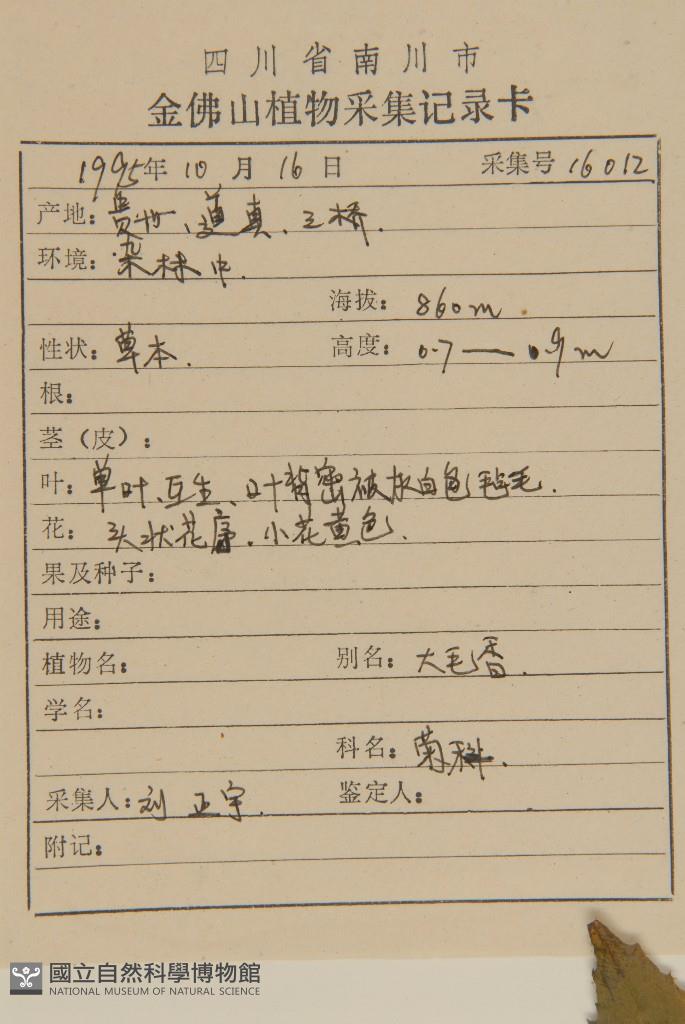 四川省南川市
金佛山植物采集记录卡
1995年 10 月 16 日 采集号 16012
产地：贵州、道真、三桥.
环境：杂林中.
海拔： 860m
性状：草本. 高度： 0.7 — 0.9 m
根：
茎（皮）：
叶：单叶、互生、叶背密被灰白色毡毛.
花： 头状花序. 小花黄色.
果及种子：
用途：
植物名： 别名： 大毛香.
学名：
科名： 菊科.
采集人：刘正宇. 鉴定人：
附记：
國立自然科學博物館
NATIONAL MUSEUM OF NATURAL SCIENCE